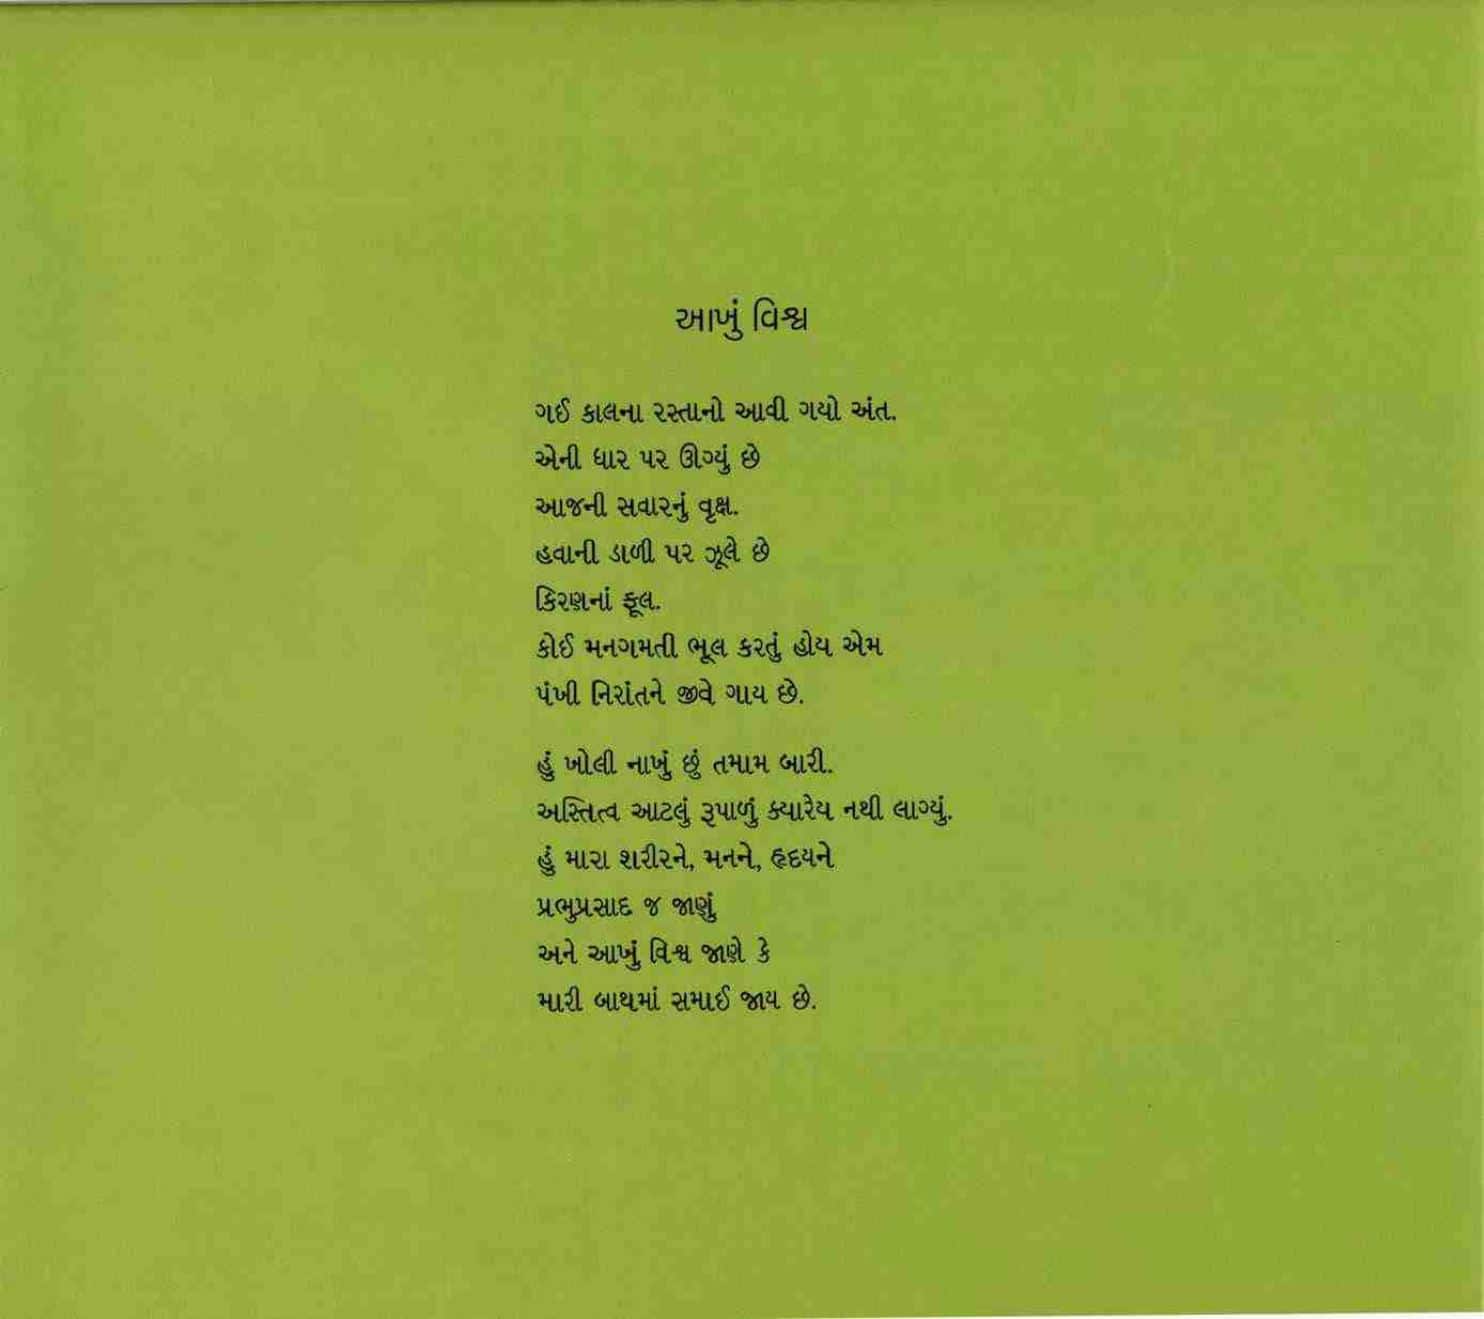 આખું વિશ્વ
ગઈ કાલના રસ્તાનો આવી ગયો અંત.
એની ધાર પર ઊગ્યું છે
આજની સવારનું વૃક્ષ.
હવાની ડાળી પર ઝૂલે છે
કિરણનાં ફૂલ.
કોઈ મનગમતી ભૂલ કરતું હોય એમ
પંખી નિરાંતને જીવે ગાય છે.
હું ખોલી નાખું છું તમામ બારી.
અસ્તિત્વ આટલું રૂપાળું ક્યારેય નથી લાગ્યું.
હું મારા શરીરને, મનને, હૃદયને
પ્રભુપ્રસાદ જ જાણું
અને આખું વિશ્વ જાણે કે
મારી બાથમાં સમાઈ જાય છે.